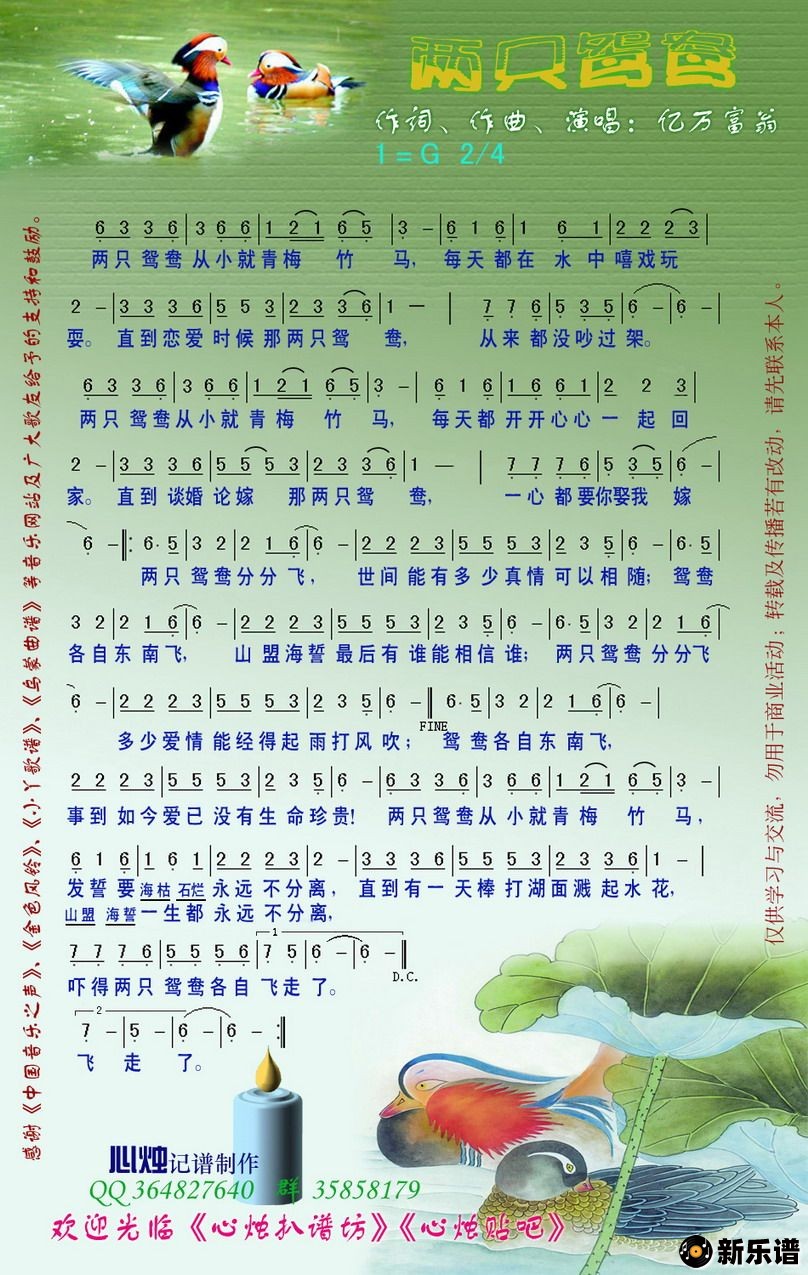 两只鸳鸯
作词、作曲、演唱：亿万富翁
1=G 2/4
6 3 3 6|3 6 6|1 2 1 6 5|3 -|6 1 6|1 6 1|2 2 2 3|
两只鸳鸯从小就青梅 竹 马，每天都在 水 中嘻戏玩
2 -|3 3 3 6|5 5 3|2 3 3 6|1 — | 7 7 6|5 3 5|6 -|6 -|
耍。直到恋爱时候那两只鸳 鸯， 从来都没吵过架。
6 3 3 6|3 6 6|1 2 1 6 5|3 -|6 1 6|1 6 6 1|2 2 3|
两只鸳鸯从小就青梅 竹 马，每天都开开心心一起回
2 -|3 3 3 6|5 5 5 3|2 3 3 6|1 — | 7 7 7 6|5 3 5|6 -|
家。直到谈婚论嫁 那两只鸳 鸯， 一心都要你娶我 嫁
6 -‖:6· 5|3 2|2 1 6|6 -|2 2 2 3|5 5 5 3|2 3 5|6 -|6· 5|
两只鸳鸯分分飞， 世间能有多少真情可以相随；鸳鸯
3 2|2 1 6|6 -|2 2 2 3|5 5 5 3|2 3 5|6 -|6· 5|3 2|2 1 6|
各自东南飞， 山盟海誓最后有谁能相信谁；两只鸳鸯分分飞
6 -|2 2 2 3|5 5 5 3|2 3 5|6 -‖6· 5|3 2|2 1 6|6 -|
FINE
多少爱情能经得起雨打风吹； 鸳鸯各自东南飞，
2 2 2 3|5 5 5 3|2 3 5|6 -|6 3 3 6|3 6 6|1 2 1 6 5|3 -|
事到如今爱已没有生命珍贵! 两只鸳鸯从小就青梅 竹 马，
6 1 6|1 6 5 1|2 2 2 3|2 -|3 3 3 6|5 5 5 3|2 3 3 6|1 -|
发誓要海枯石烂永远不分离，直到有一天棒打湖面溅起水花，
山盟海誓一生都永远不分离，
7 7 7 6|5 5 5 3|7 5|6 -|6 -‖
1
D.C.
吓得两只鸳鸯各自飞走了。
2
7 -|5 -|6 -|6 -:‖
飞 走 了。
心烛记谱制作
QQ 364827640 群 35858179
欢迎光临《心烛扒谱坊》《心烛贴吧》
感谢《中国音乐之声》、《金色风铃》、《小丫歌谱》、《乌蒙曲谱》等音乐网站及广大歌友给予的支持和鼓励。
仅供学习与交流，勿用于商业活动；转载及传播若有改动，请先联系本人。
新乐谱